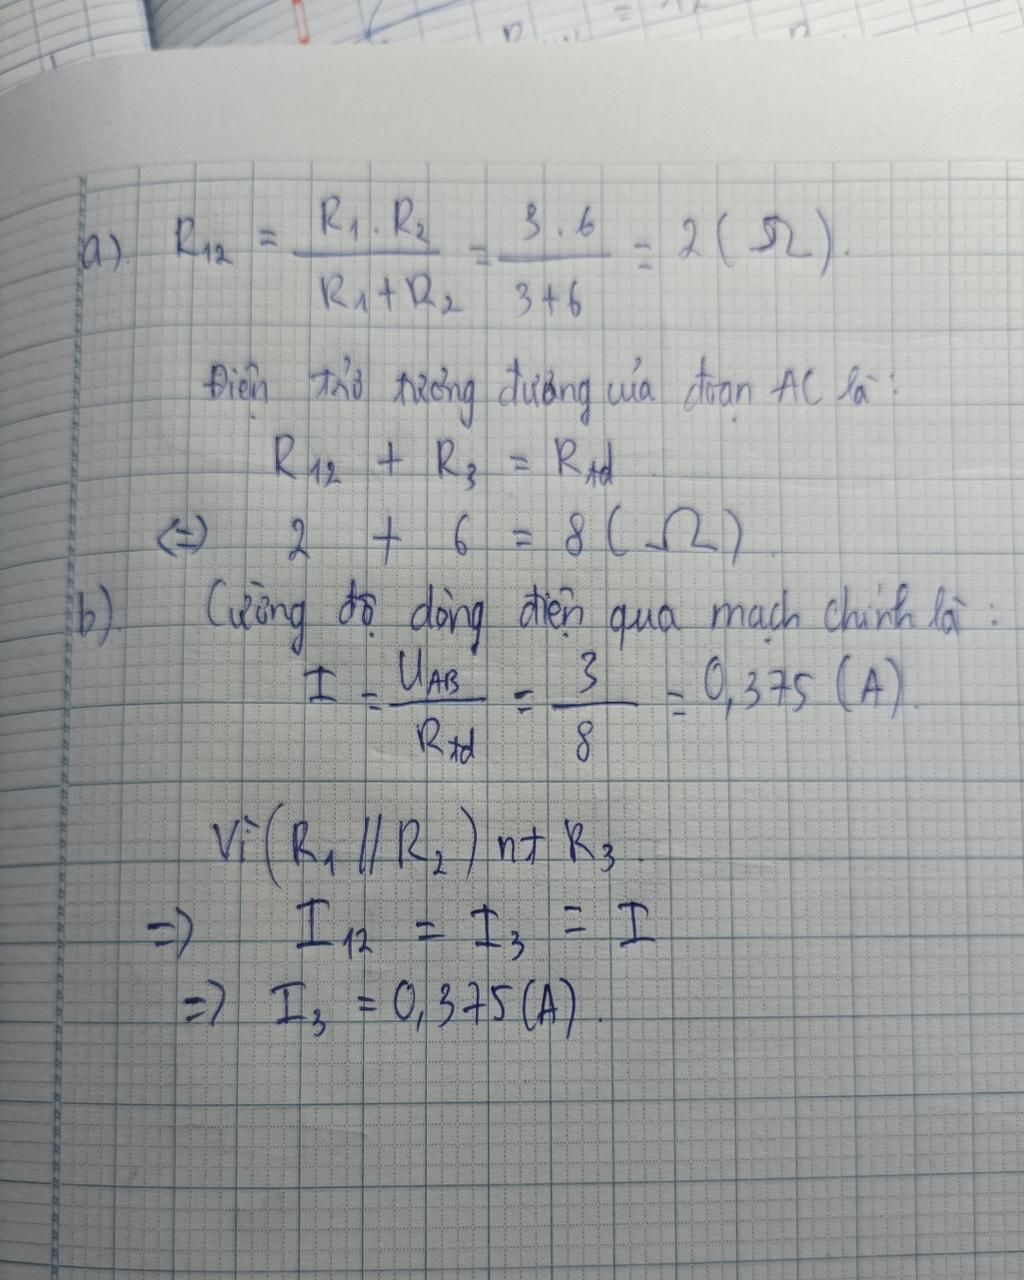 a). R₁₂ = R₁.R₂ / R₁+R₂ = 3.6 / 3+6 = 2(Ω).
Điện trở tương đương của đoạn AC là:
R₁₂ + R₃ = Rtđ
<=> 2 + 6 = 8(Ω)
b) Cường độ dòng điện qua mạch chính là:
I = UAB / Rtđ = 3 / 8 = 0,375 (A).
Vì (R₁ // R₂) nt R₃.
=> I₁₂ = I₃ = I
=> I₃ = 0,375(A).